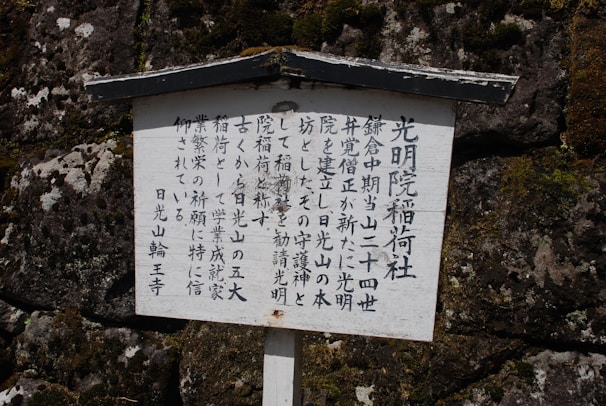 光明院稲荷社
鎌倉中期当山二十四世
弁覚僧正が新たに光明
院を建立し日光山の本
坊とした。その守護神と
して稲荷社を勧請光明
院稲荷と称す。
古くから日光山の五大
稲荷として学業成就家
業繁栄の祈願に特に信
仰されている。
日光山輪王寺